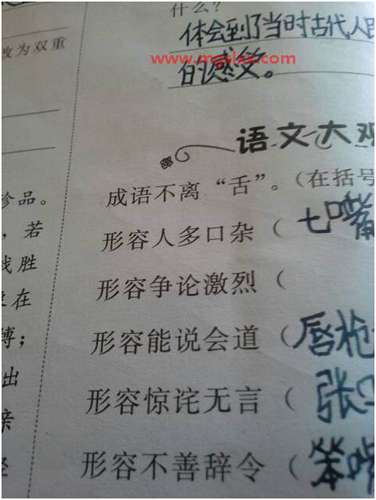 什么？
体会到了当时古代人民
的感受。
改为双重
语文大观
成语不离“舌”。（在括号
形容人多口杂（七嘴
形容争论激烈（
形容能说会道（唇枪
形容惊诧无言（张口
形容不善辞令（笨嘴
珍品。
，若
战胜
在
搏；
出
亲